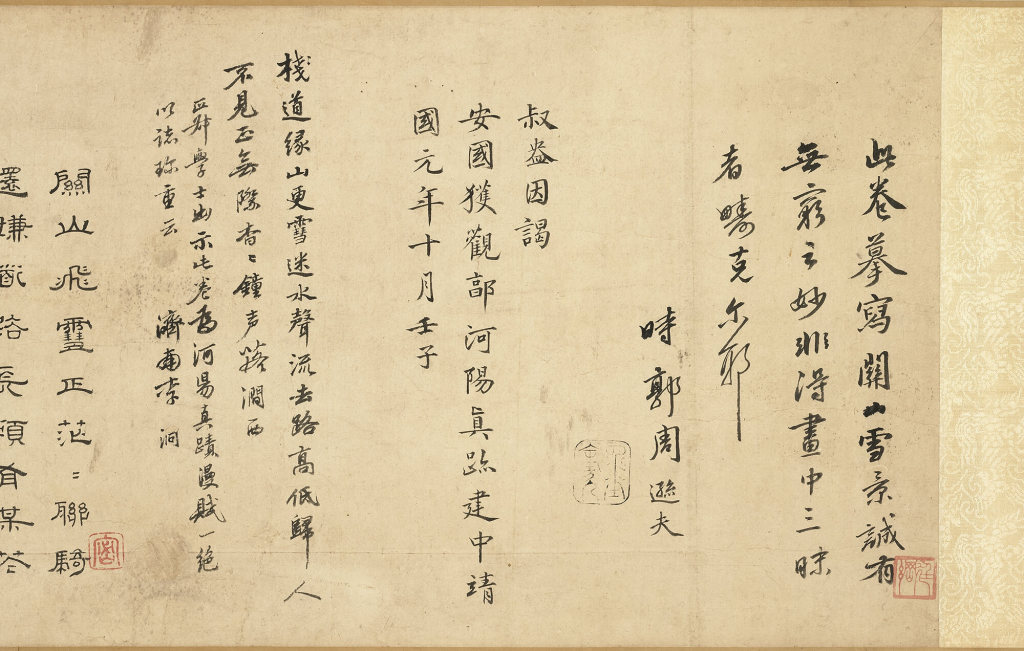 此卷摹寫關山雪景誠有
無窮之妙非得畫中三昧
者疇克尔耶
時郭周遜夫
叔益因謁
安國獲觀郭河陽真跡建中靖
國元年十月壬子
栈道緣山更雪迷水聲流去路高低歸人
不見正無際杳杳鐘声落澗西
學士出示此卷為河陽真蹟漫賦一絕
以誌珍重云 濟南李泂
關山飛雪正茫茫聯騎
還嫌路長須有某